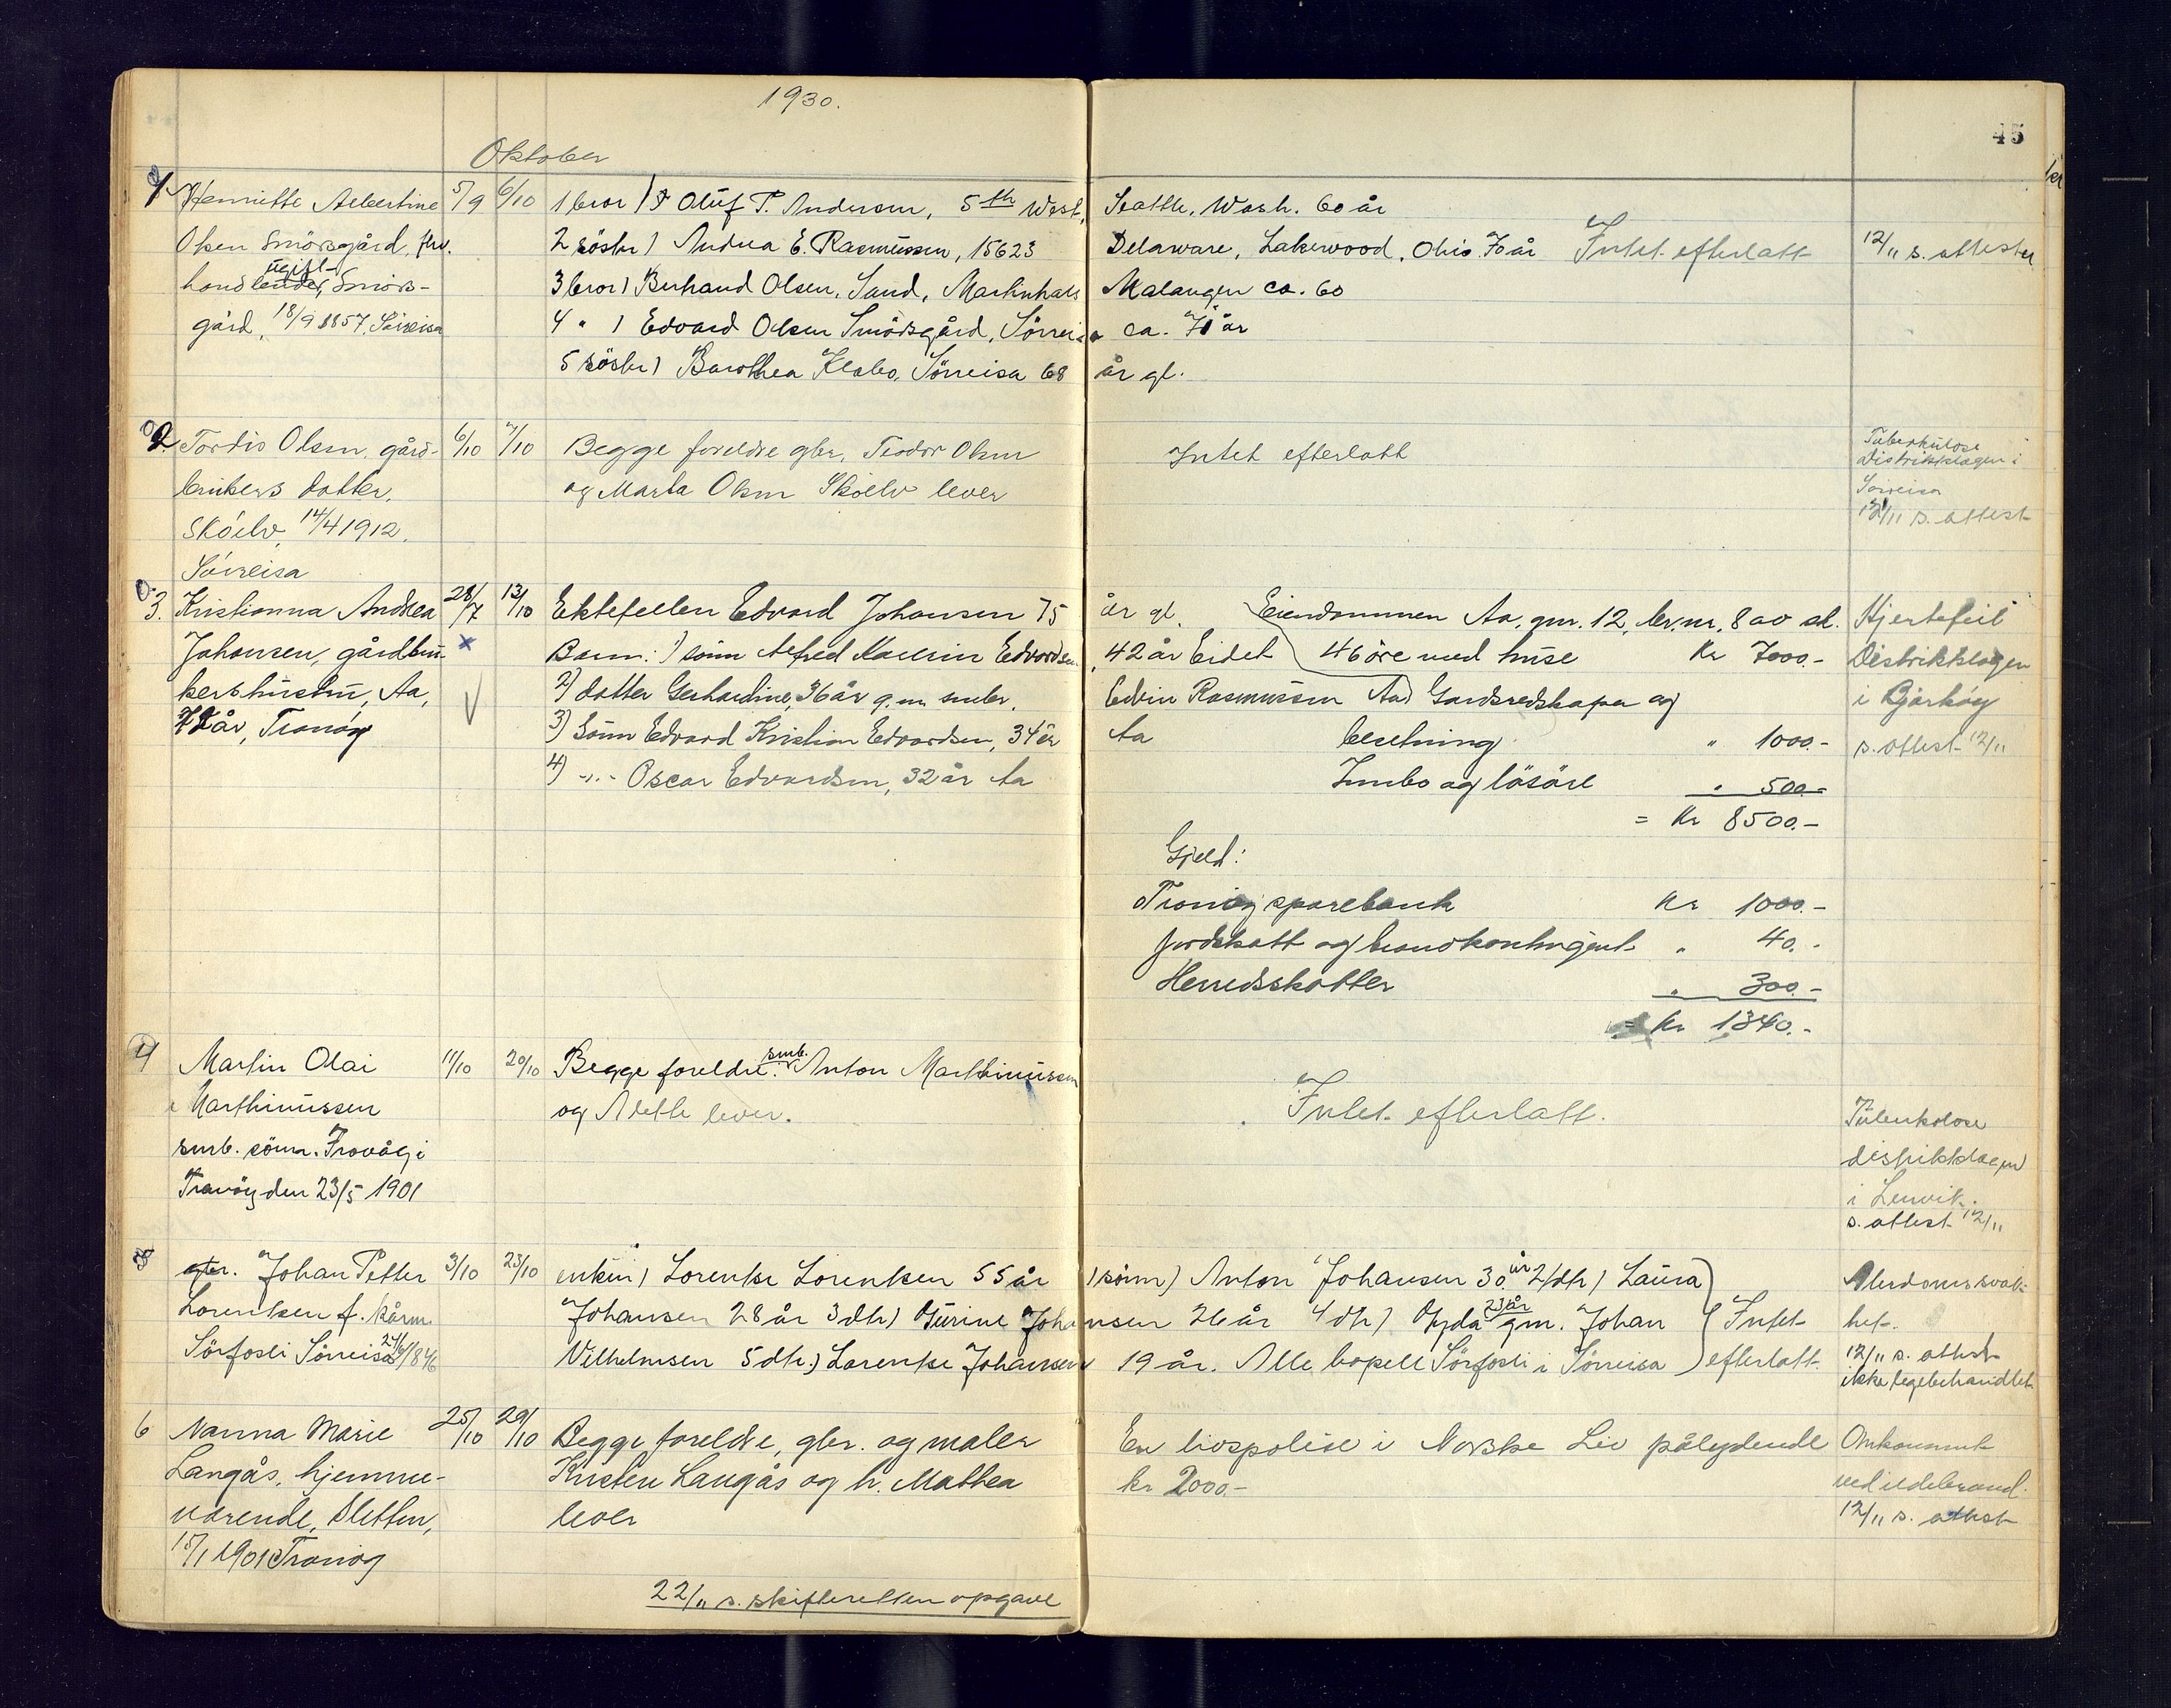 1930.
45
Oktober
1 Henriette Albertine 5/9 6/10 1 bror) Oluf P. Andersen, 5th West, Seattle, Wash. 60 år
Olsen Smörsgård, fhv. 2 söster) Andrea E. Rasmussen, 15623 Delaware, Lakewood, Ohio. 70 år Intet efterlatt 12/11 s. attester
handlende, ugift Smörs- 3 bror) Berhand Olsen, Sand, Malangen ca. 60
gård, 18/9 1857, Sörreisa 4 " ) Edvard Olsen Smörsgård, Sörreisa ca. 71 år
5 söster) Barothea Klabo, Sörreisa 68 år gl.
2. Tordis Olsen, gård- 6/10 7/10 Begge foreldre gbr. Teodor Olsen Intet efterlatt Tuberkulose
brukers datter, og Marta Olsen Sköelv lever Distriktslegen i
Sköelv, 14/4 1912, Sörreisa
Sörreisa 12/11 s. attest
3. Kristianna Andrea 28/7 13/10 Ektefellen Edvard Johansen 75 år gl. Eiendommen Aa, gnr. 12, br.nr. 8 av sk. Hjertefeil
Johansen, gårdbru- x Barn: 1) sönn Alfred Edvardsen, 42 år Eidet 46 öre med huse Kr 7000.- Distriktslegen
kerhustru, Aa, 2) datter Gerhardine, 36 år g.m. smbr. Edvin Rasmussen Aa) Gardsredskaper og i Bjarköy
72 år, Tranöy 3) Sönn Edvard Kristian Edvardsen, 34 år Aa besetning " 1000.- s. attest 12/11
4) -"- Oscar Edvardsen, 32 år Aa
Innbo og lösöre " 500.-
= Kr 8500.-
Gjeld:
Tranöy sparebank Kr 1000.-
Jordskatt og brandkontingent " 40.-
Herredsskatter " 300.-
= Kr 1340.-
4 Martin Olai 11/10 20/10 Begge foreldre: smb. Anton Marthinussen
Marthinussen og Adette lever. Intet efterlatt. Tuberkulose
smb. sönn. Frovåg i distriktslegen
Tranöy den 23/5 1901 i Lenvik.
s. attest 12/11
5 gbr. Johan Petter 3/10 23/10 enken) Lorentse Lorentsen 55 år 1 sönn) Anton Johansen 30 år 2 dtr) Laura Alderdomssvak-
Lorentsen f. kårm. Johansen 28 år 3 dtr) Turine Johansen 26 år 4 dtr) Hyda 23 år gm. Johan Intet het.
Sörfosli Sörreisa 24/6 1846 Vilhelmsen 5 dtr.) Lorentse Johansen 19 år. Alle bopell Sörfosli i Sörreisa efterlatt. 12/11 s. attest
ikke legebehandlet
6 Nanna Marie 25/10 29/10 Begge foreldre, gbr. og maler En livspolise i Norske Liv pålydende Omkommet
Langås, hjemme- Kristen Langås og h. Mathea kr 2000.- ved ildebrand.
værende, Sletten, lever 12/11 s. attest
15/1 1901 Tranöy
22/11 s. skifteretten opgave